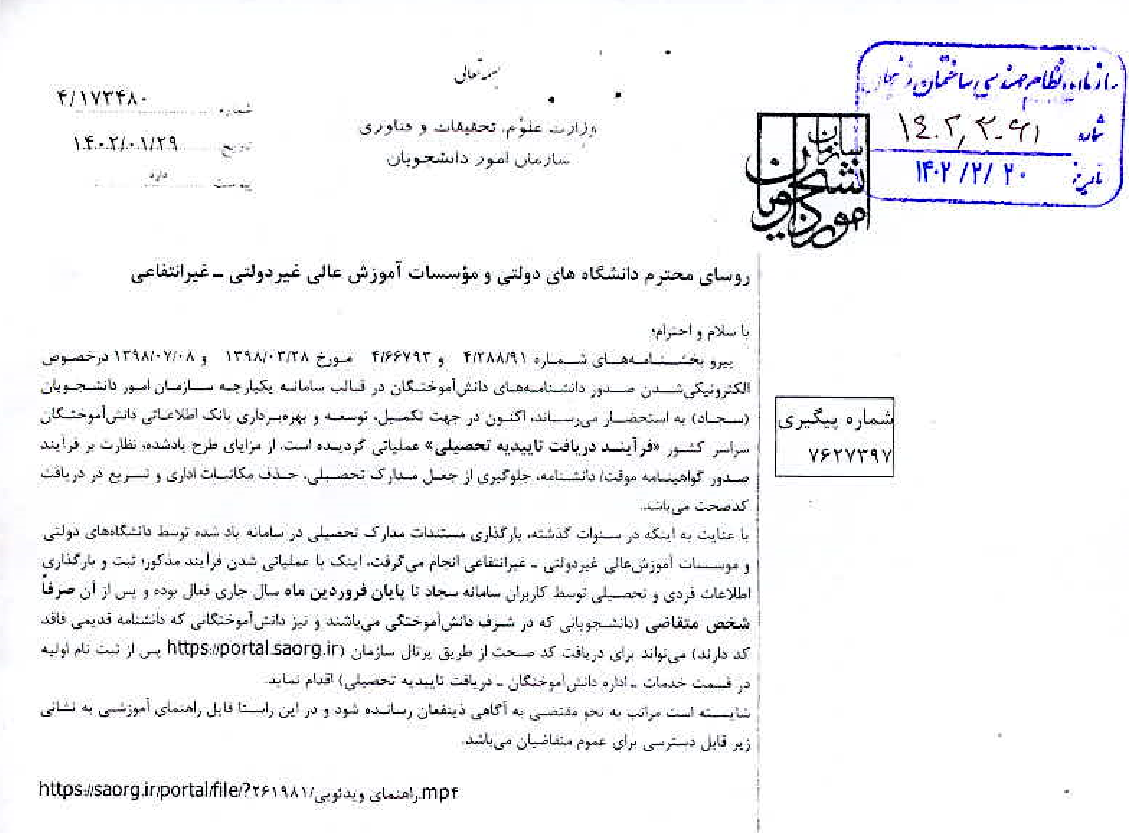 بسمه تعالی
وزارت علوم، تحقیقات و فناوری
سازمان امور دانشجویان
شماره ۴/۱۷۳۴۸۰
تاریخ ۱۴۰۲/۰۱/۲۹
پیوست دارد
سازمان امور دانشجویان
سازمان نظام مهندسی ساختمان زنجان
شماره
تاریخ: ۱۴۰۲/۲/۲۰
روسای محترم دانشگاه های دولتی و مؤسسات آموزش عالی غیردولتی ـ غیرانتفاعی
با سلام و احترام؛
پیرو بخشنامه‌های شماره ۴/۲۸۸/۹۱ و ۴/۶۶۷۹۳ مورخ ۱۳۹۸/۰۳/۲۸ و ۱۳۹۸/۰۷/۰۸ درخصوص
الکترونیکی‌شدن صدور دانشنامه‌های دانش‌آموختگان در قالب سامانه یکپارچه سازمان امور دانشجویان
(سجاد) به استحضار می‌رساند، اکنون در جهت تکمیل، توسعه و بهره‌برداری بانک اطلاعاتی دانش‌آموختگان
سراسر کشور «فرآیند دریافت تاییدیه تحصیلی» عملیاتی گردیده است. از مزایای طرح یادشده، نظارت بر فرآیند
صدور گواهینامه موقت/ دانشنامه، جلوگیری از جعل مدارک تحصیلی، حذف مکاتبات اداری و تسریع در دریافت
کدصحت می‌باشد.
با عنایت به اینکه در سنوات گذشته، بارگذاری مستندات مدارک تحصیلی در سامانه یاد شده توسط دانشگاه‌های دولتی
و موسسات آموزش‌عالی غیردولتی ـ غیرانتفاعی انجام می‌گرفت، اینک با عملیاتی شدن فرآیند مذکور؛ ثبت و بارگذاری
اطلاعات فردی و تحصیلی توسط کاربران سامانه سجاد تا پایان فروردین ماه سال جاری فعال بوده و پس از آن صرفاً
شخص متقاضی (دانشجویانی که در شرف دانش‌آموختگی می‌باشند و نیز دانش‌آموختگانی که دانشنامه قدیمی فاقد
کد دارند) می‌تواند برای دریافت کد صحت از طریق پرتال سازمان (https://portal.saorg.ir پس از ثبت نام اولیه
در قسمت خدمات ـ اداره دانش‌آموختگان ـ دریافت تاییدیه تحصیلی) اقدام نماید.
شایسته است مراتب به نحو مقتضی به آگاهی ذینفعان رسانده شود و در این راستا فایل راهنمای آموزشی به نشانی
زیر قابل دسترسی برای عموم متقاضیان می‌باشد.
https://saorg.ir/portal/file/?۲۶۱۹۸۱/راهنمای ویدئویی.mp۴
شماره پیگیری
۷۶۲۷۳۹۷